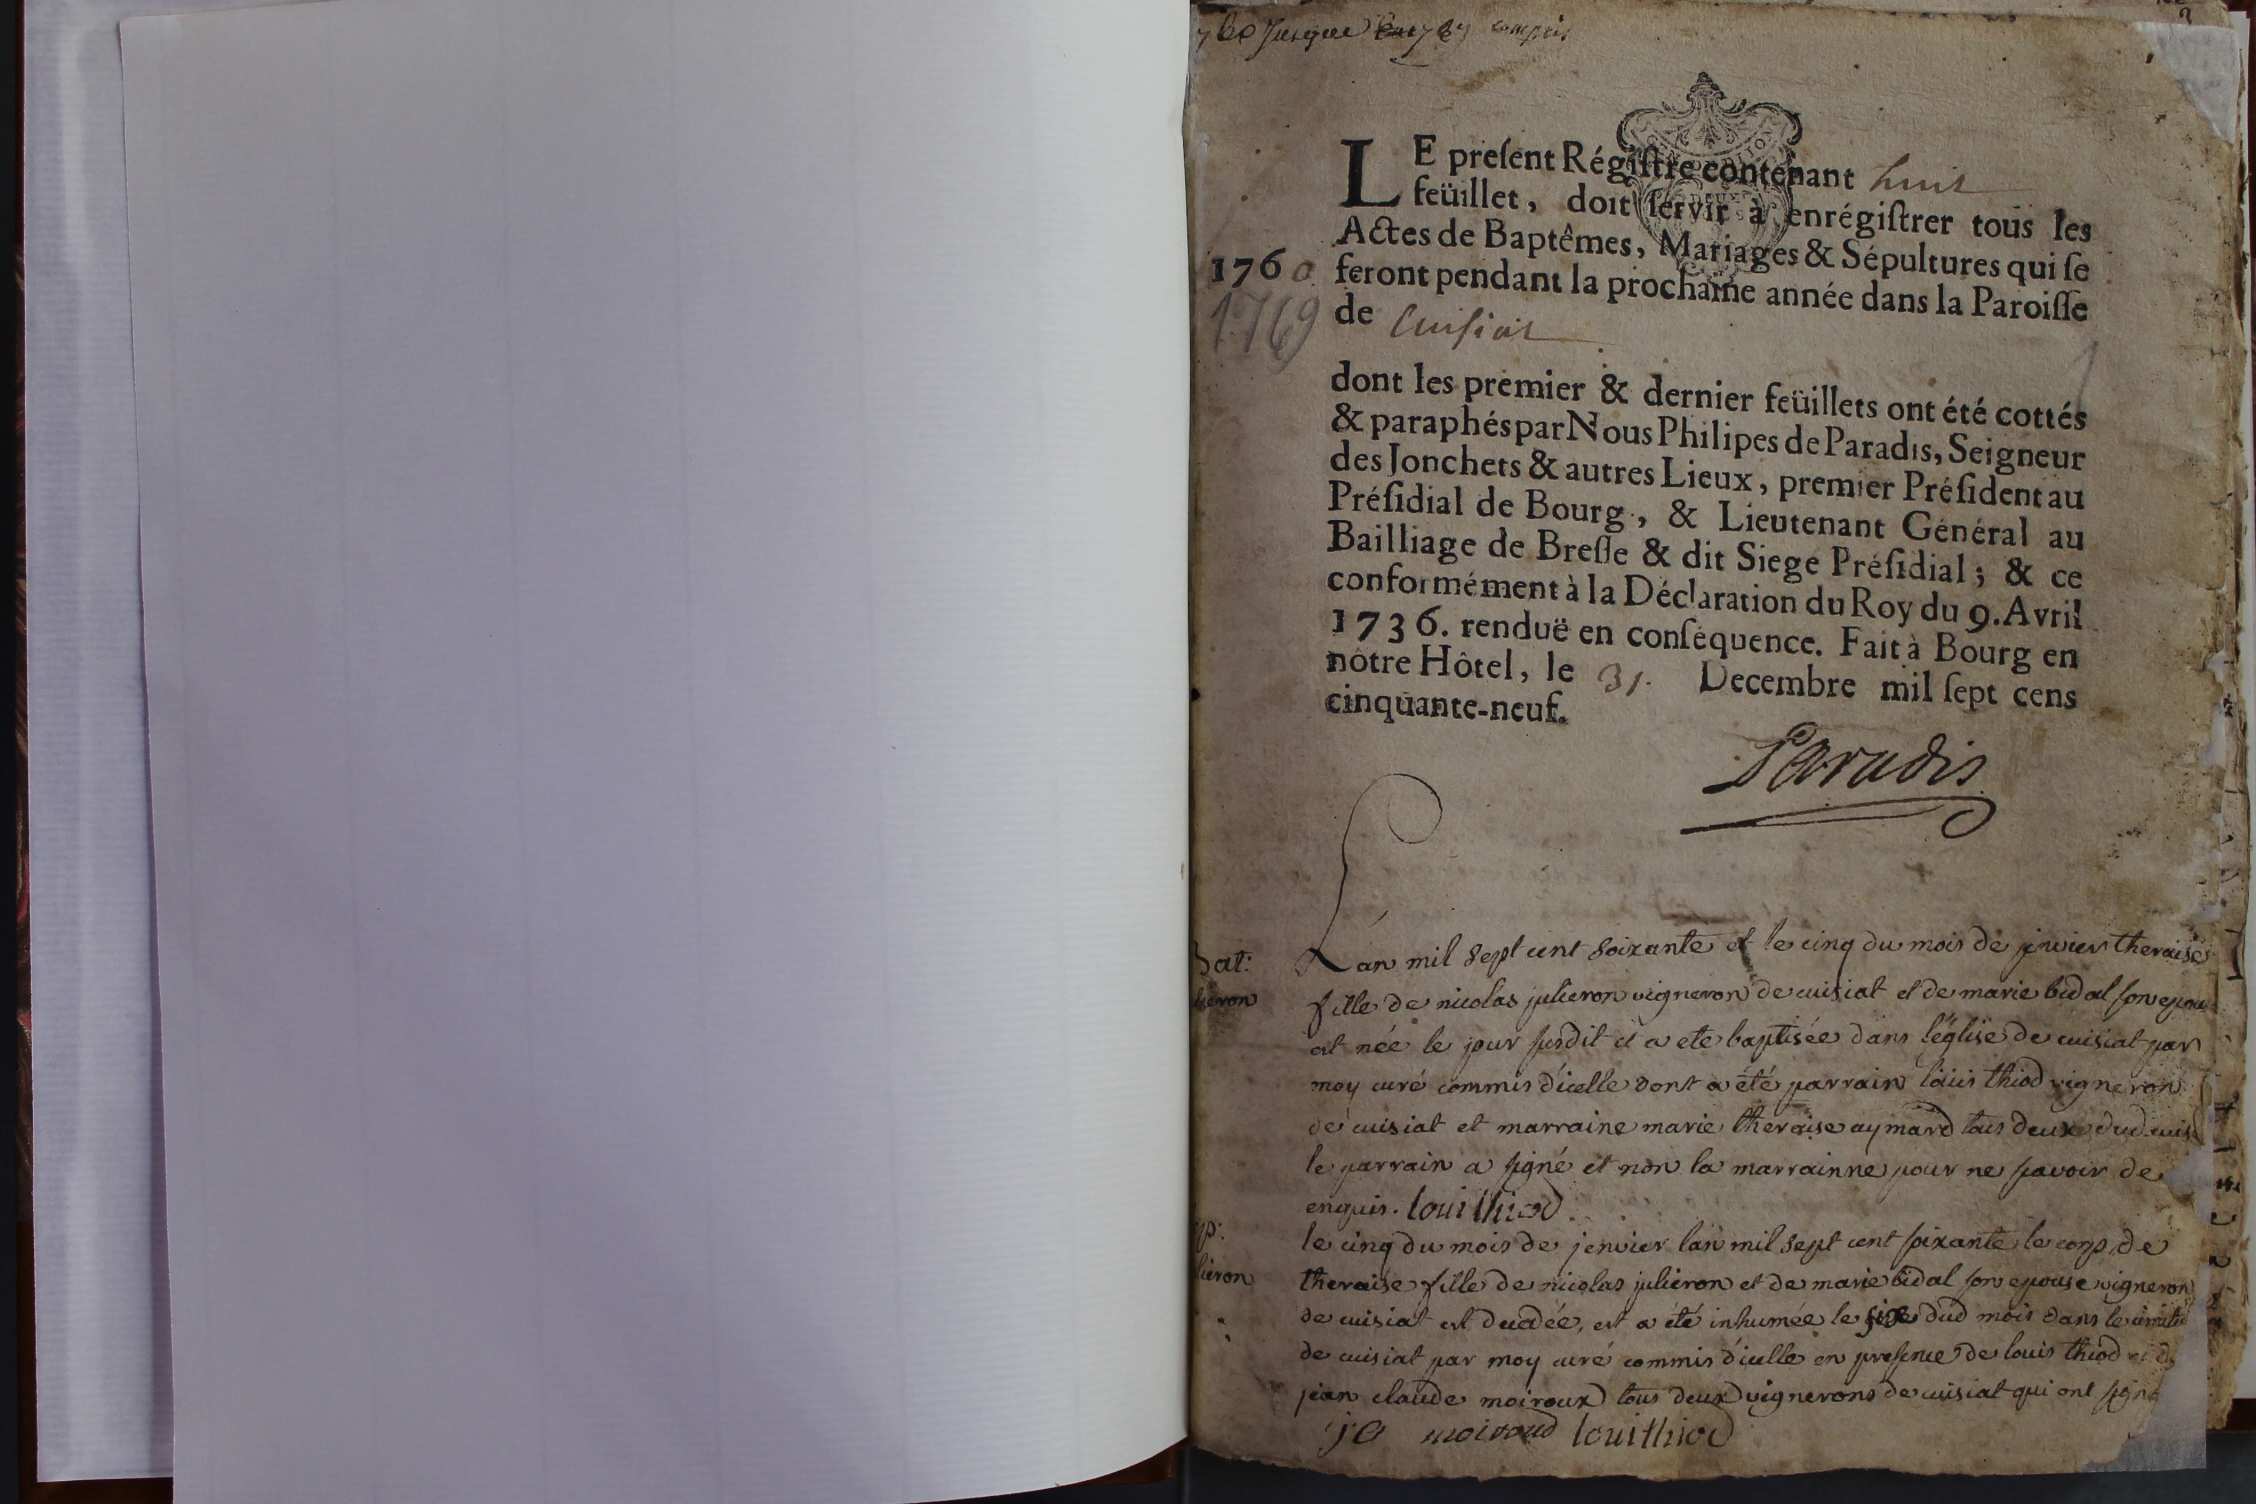 760 Jusque en 1769 compris
LE preſent Régiſtre contenant huit
feüillet, doit ſervir à enrégiſtrer tous les
Actes de Baptêmes, Mariages & Sépultures qui ſe
1760 feront pendant la prochaine année dans la Paroiſſe
1769 de Cuisiat
dont les premier & dernier feüillets ont été cottés
& paraphés par Nous Philipes de Paradis, Seigneur
des Jonchets & autres Lieux, premier Préſident au
Préſidial de Bourg, & Lieutenant Général au
Bailliage de Breſſe & dit Siege Préſidial; & ce
conformément à la Déclaration du Roy du 9. Avril
1736. renduë en conſéquence. Fait à Bourg en
nôtre Hôtel, le 31. Decembre mil ſept cens
cinquante-neuf.
Paradis
bat: Lan mil sept cent soixante et le cinq du mois de jenvier theraise
lieron fille de nicolas julieron vigneron de cuisiat et de marie bidal son epou
est née le jour susdit et a ete baptisée dans l'église de cuisiat par
moy curé commis d'icelle dont a été parrain louis thiod vigneron
de cuisiat et marraine marie theraise aymard tous deux dud cuis
le parrain a signé et non la marrainne pour ne savoir de
enquis. louithiod
le cinq du mois de jenvier lan mil sept cent soixante le corps de
lieron theraise fille de nicolas julieron et de marie bidal son epouse vigneron
de cuisiat est decedée, est a été inhumée le six dud mois dans le cimitie
de cuisiat par moy curé commis d'icelle en presence de louis thiod et d
jean claude moiroux tous deux vignerons de cuisiat qui ont signe
jc moiroud louithiod